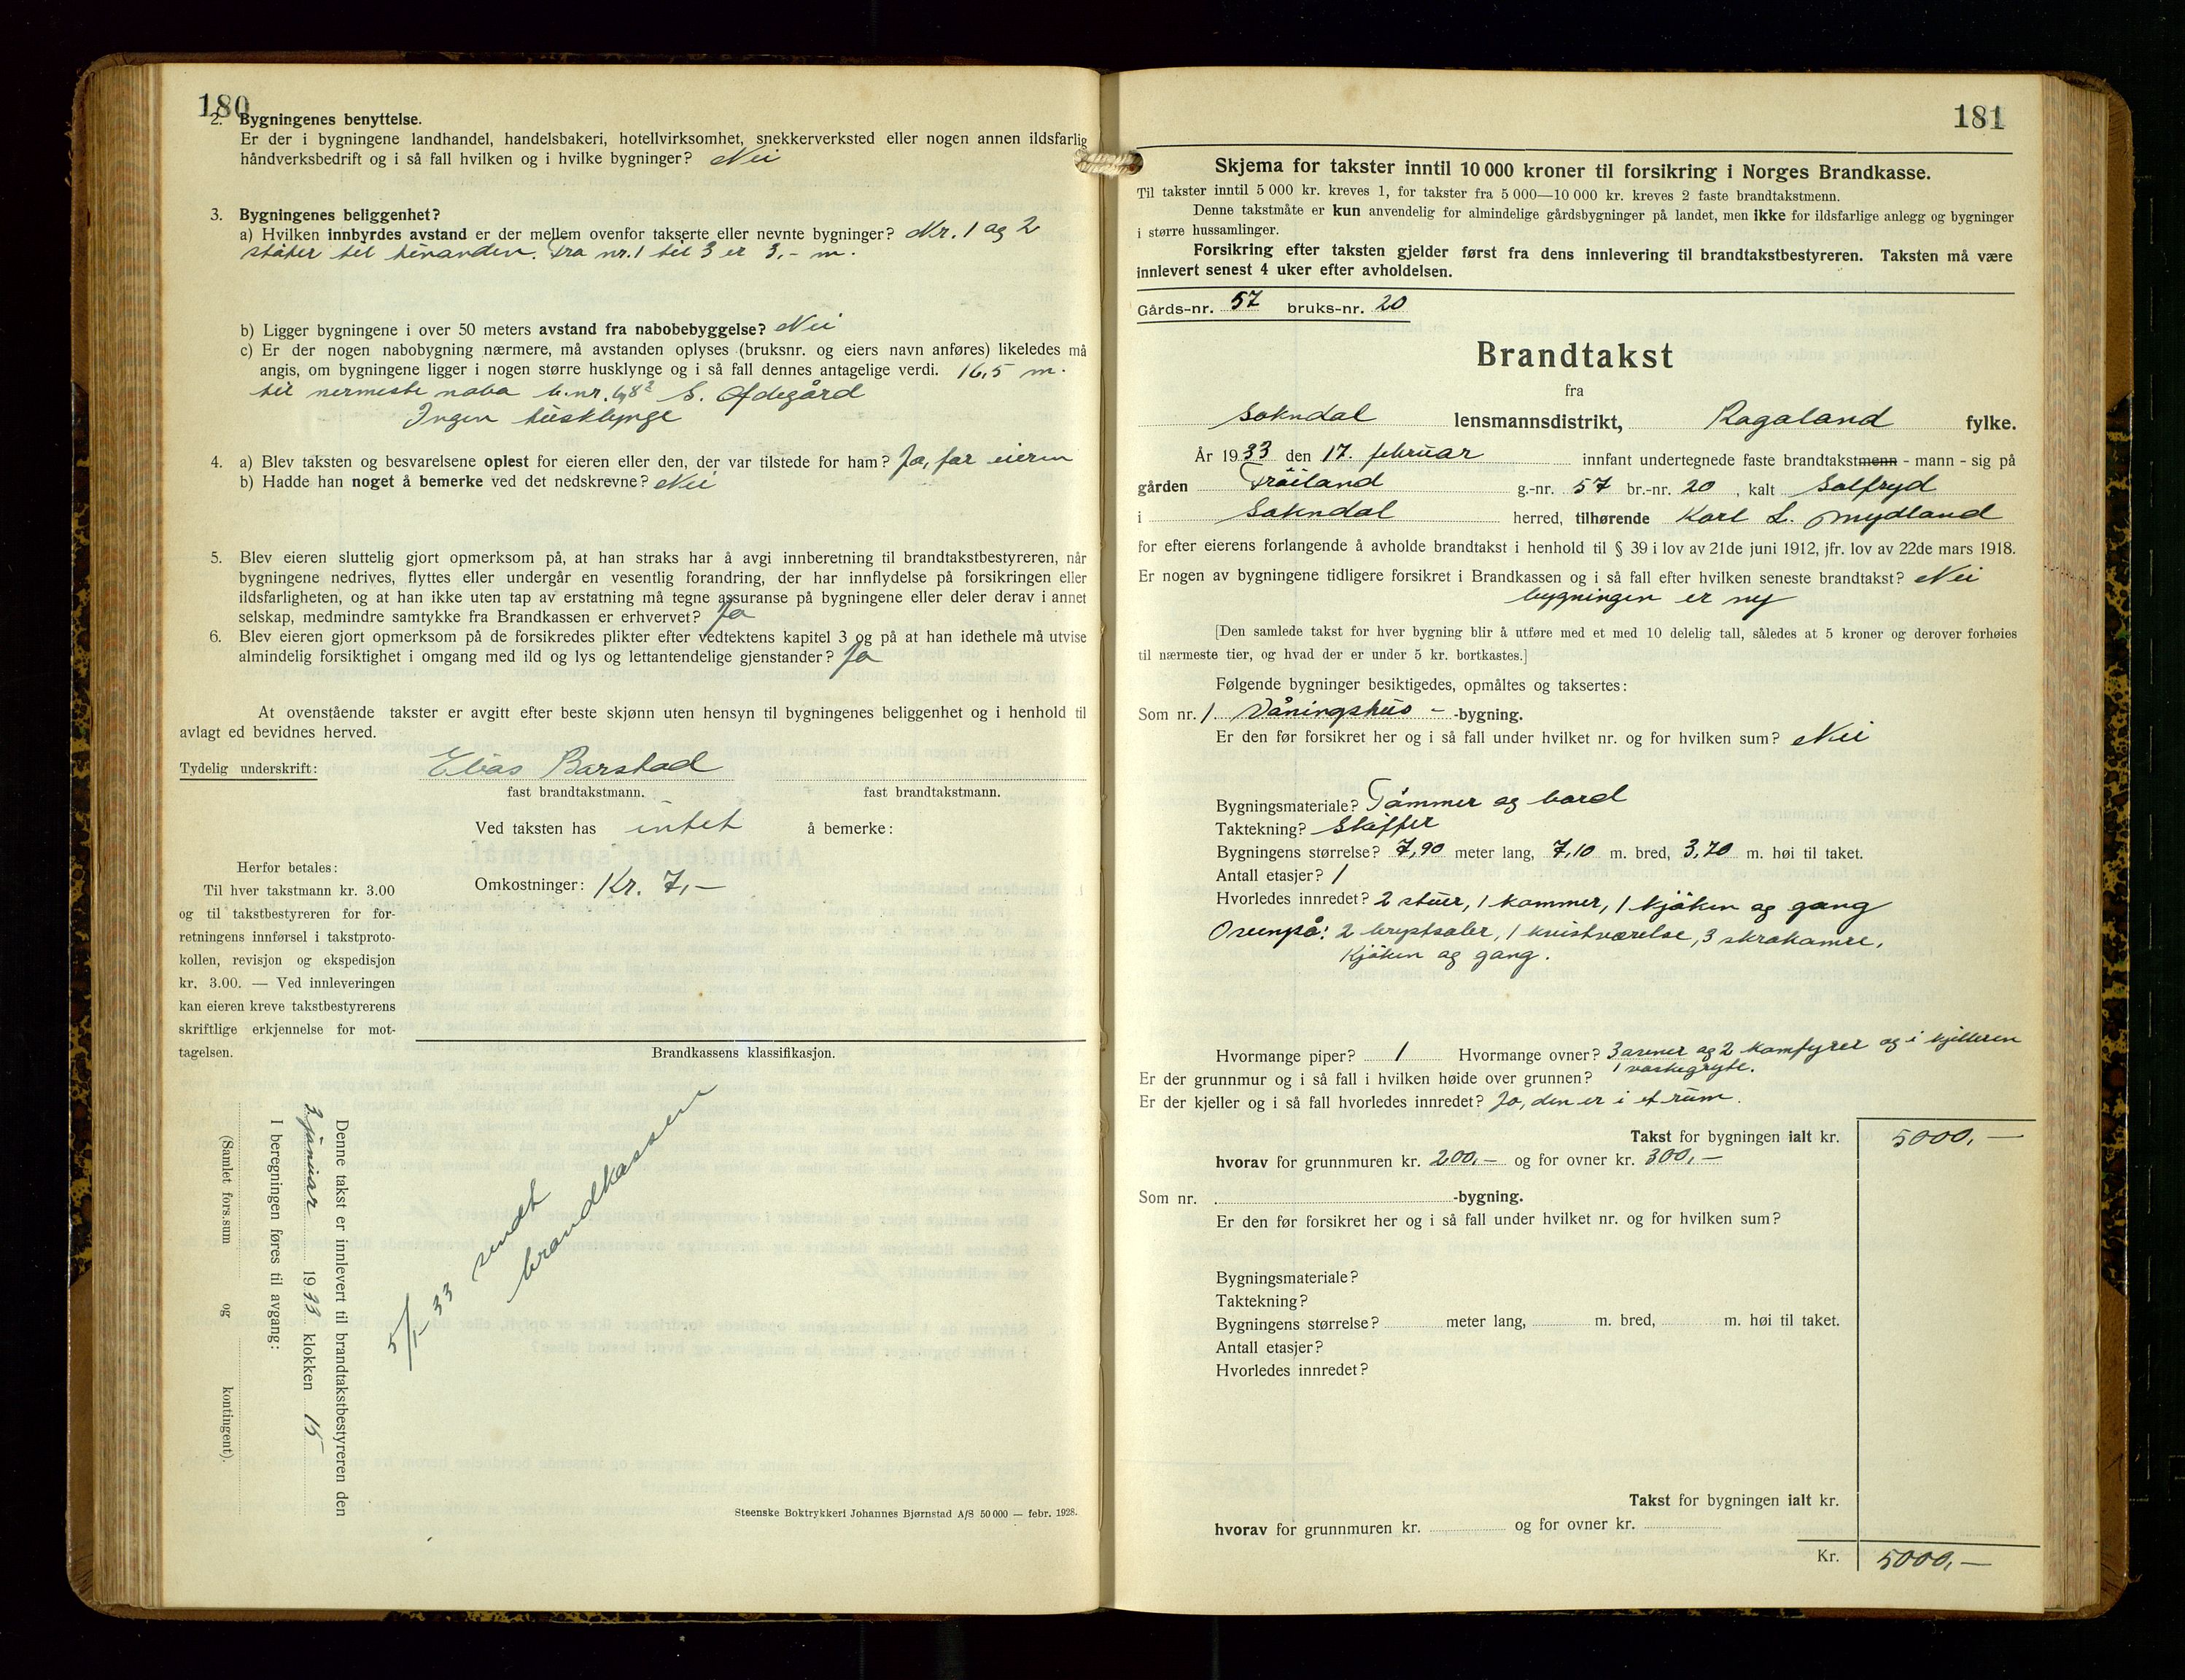 180
2. Bygningenes benyttelse.
Er der i bygningene landhandel, handelsbakeri, hotellvirksomhet, snekkerverksted eller nogen annen ildsfarlig
håndverksbedrift og i så fall hvilken og i hvilke bygninger? Nei
3. Bygningenes beliggenhet?
a) Hvilken innbyrdes avstand er der mellem ovenfor takserte eller nevnte bygninger? Nr. 1 og 2
støter til hinanden. Fra nr. 1 til 3 er 3,- m.
b) Ligger bygningene i over 50 meters avstand fra nabobebyggelse? Nei
c) Er der nogen nabobygning nærmere, må avstanden oplyses (bruksnr. og eiers navn anføres) likeledes må
angis, om bygningene ligger i nogen større husklynge og i så fall dennes antagelige verdi. 16,5 m.
til nermeste nabo b.nr. S. Ødegård
Ingen husklynge
4. a) Blev taksten og besvarelsene oplest for eieren eller den, der var tilstede for ham? Ja, for eieren
b) Hadde han noget å bemerke ved det nedskrevne? Nei
5. Blev eieren sluttelig gjort opmerksom på, at han straks har å avgi innberetning til brandtakstbestyreren, når
bygningene nedrives, flyttes eller undergår en vesentlig forandring, der har innflydelse på forsikringen eller
ildsfarligheten, og at han ikke uten tap av erstatning må tegne assuranse på bygningene eller deler derav i annet
selskap, medmindre samtykke fra Brandkassen er erhvervet? Ja
6. Blev eieren gjort opmerksom på de forsikredes plikter efter vedtektens kapitel 3 og på at han idethele må utvise
almindelig forsiktighet i omgang med ild og lys og lettantendelige gjenstander? Ja
At ovenstående takster er avgitt efter beste skjønn uten hensyn til bygningenes beliggenhet og i henhold til
avlagt ed bevidnes herved.
Tydelig underskrift: Elias Barstad
fast brandtakstmann. fast brandtakstmann.
Ved taksten has intet å bemerke:
Omkostninger: Kr. 7,-
Herfor betales:
Til hver takstmann kr. 3.00
og til takstbestyreren for for-
retningens innførsel i takstproto-
kollen, revisjon og ekspedisjon
kr. 3.00. — Ved innleveringen
kan eieren kreve takstbestyrerens
skriftlige erkjennelse for mot-
tagelsen.
Brandkassens klassifikasjon.
Denne takst er innlevert til brandtakstbestyreren den
3 januar 1933 klokken 15
I beregningen føres til avgang:
(Samlet fors.sum og kontingent).
5/1-33 sendt
brandkassen
Steenske Boktrykkeri Johannes Bjørnstad A/S 50 000 — febr. 1928.
181
Skjema for takster inntil 10 000 kroner til forsikring i Norges Brandkasse.
Til takster inntil 5 000 kr. kreves 1, for takster fra 5 000—10 000 kr. kreves 2 faste brandtakstmenn.
Denne takstmåte er kun anvendelig for almindelige gårdsbygninger på landet, men ikke for ildsfarlige anlegg og bygninger
i større hussamlinger.
Forsikring efter taksten gjelder først fra dens innlevering til brandtakstbestyreren. Taksten må være
innlevert senest 4 uker efter avholdelsen.
Gårds-nr. 57 bruks-nr. 20
Brandtakst
fra
Sokndal lensmannsdistrikt, Rogaland fylke.
År 1933 den 17. februar innfant undertegnede faste brandtakstmenn - mann - sig på
gården Frøiland g.-nr. 57 br.-nr. 20, kalt Solfryd
i Sokndal herred, tilhørende Karl L. Mydland
for efter eierens forlangende å avholde brandtakst i henhold til § 39 i lov av 21de juni 1912, jfr. lov av 22de mars 1918.
Er nogen av bygningene tidligere forsikret i Brandkassen og i så fall efter hvilken seneste brandtakst? Nei
bygningen er ny
[Den samlede takst for hver bygning blir å utføre med et med 10 delelig tall, således at 5 kroner og derover forhøies
til nærmeste tier, og hvad der er under 5 kr. bortkastes.]
Følgende bygninger besiktigedes, opmåltes og taksertes:
Som nr. 1 Våningshus - -bygning.
Er den før forsikret her og i så fall under hvilket nr. og for hvilken sum? Nei
Bygningsmateriale? Tømmer og bord
Taktekning? Skiffer
Bygningens størrelse? 7,90 meter lang, 7,10 m. bred, 3,70 m. høi til taket.
Antall etasjer? 1
Hvorledes innredet? 2 stuer, 1 kammer, 1 kjøken og gang
Ovenpå: 2 brystsaler, 1 kvistværelse, 3 skråkamre,
kjøken og gang.
Hvormange piper? 1 Hvormange ovner? 3 ovner og 2 komfyrer og i kjelleren
1 vaskegryte.
Er der grunnmur og i så fall i hvilken høide over grunnen?
Er der kjeller og i så fall hvorledes innredet? Ja, den er i et rum.
Takst for bygningen ialt kr. 5000,-
hvorav for grunnmuren kr. 200,- og for ovner kr. 300,-
Som nr. -bygning.
Er den før forsikret her og i så fall under hvilket nr. og for hvilken sum?
Bygningsmateriale?
Taktekning?
Bygningens størrelse? meter lang, m. bred, m. høi til taket.
Antall etasjer?
Hvorledes innredet?
Takst for bygningen ialt kr.
hvorav for grunnmuren kr. og for ovner kr.
Kr. 5000,-